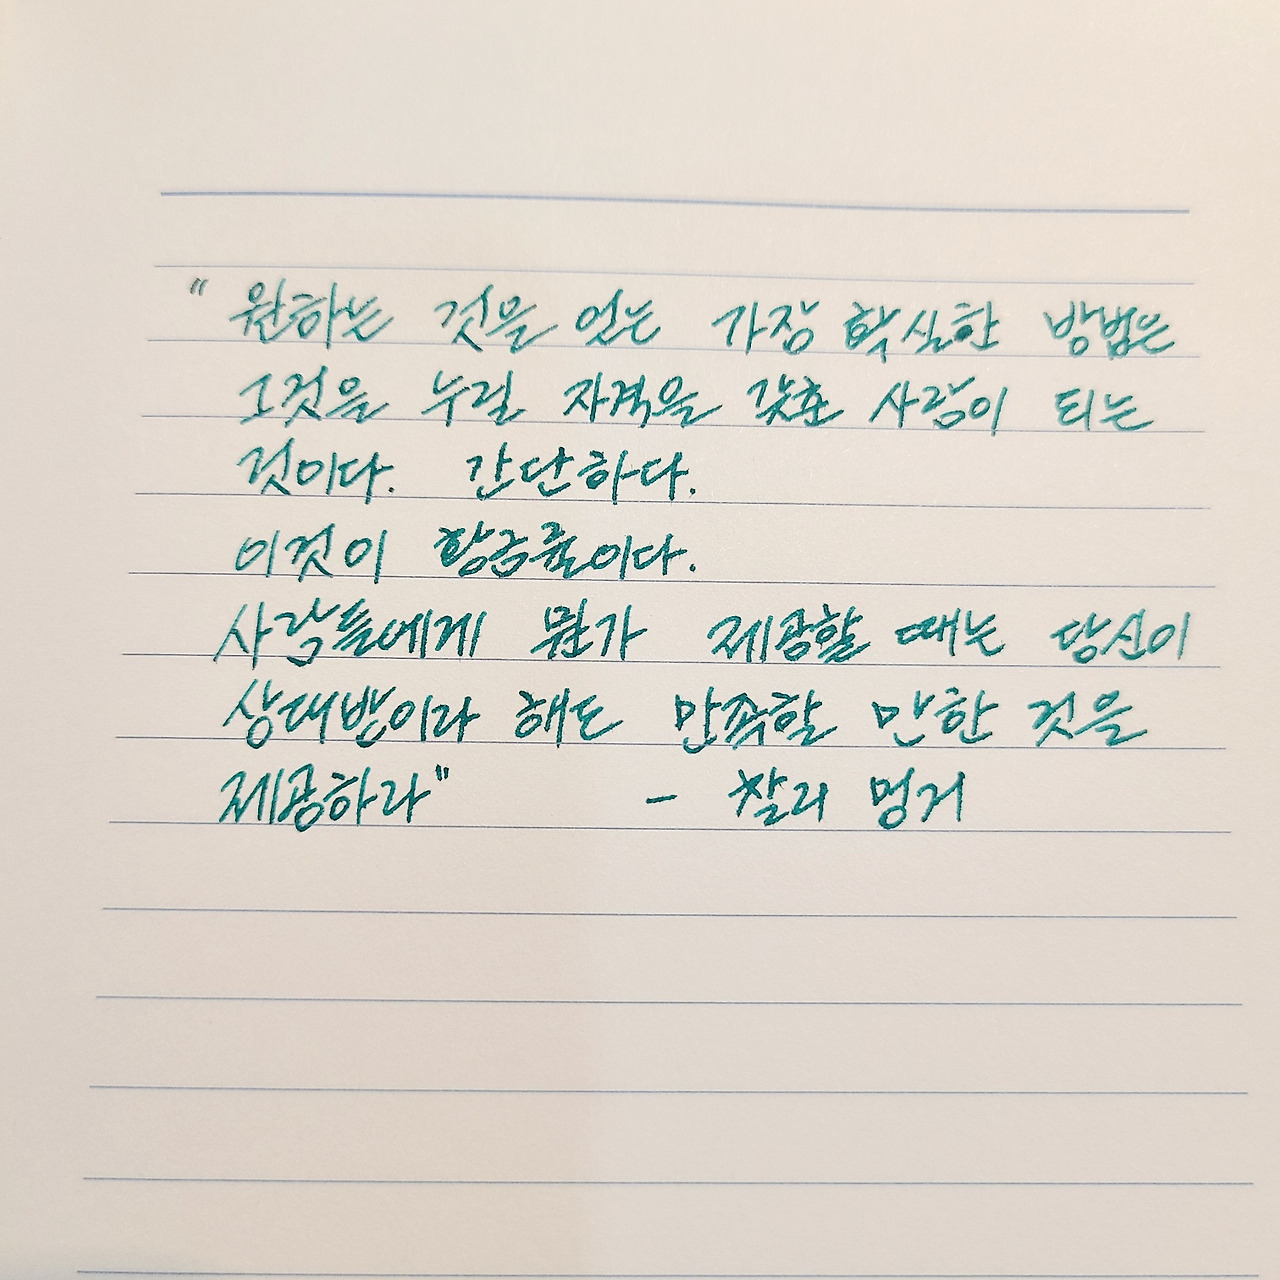 "원하는 것을 얻는 가장 확실한 방법은
그것을 누릴 자격을 갖춘 사람이 되는
것이다. 간단하다.
이것이 황금률이다.
사람들에게 뭔가 제공할 때는 당신이
상대방이라 해도 만족할 만한 것을
제공하라" - 찰리 멍거